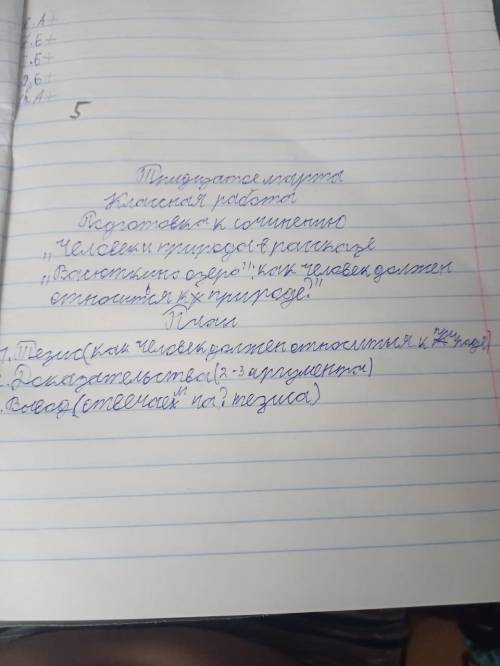 А+
Е+
Е+
Б+
А+
5
Тридцатое марта
Классная работа
Подготовка к сочинению
„Человек и природа в рассказе
„Васюткино озеро": как человек должен
относится к природе?"
План
1. Тезис (как человек должен относиться к природе)
2. Доказательства (2-3 аргумента)
3. Вывод (отвечаем на ? тезиса)